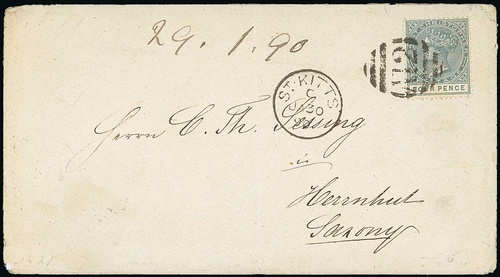 29. 1. 90
CHRISTOPHER
FOUR PENCE
ST. KITTS
C
30
Herrn C. Th.
in
Herrnhut
Saxony